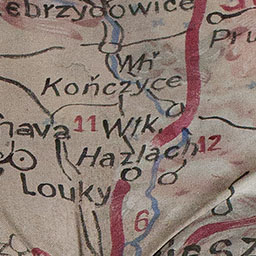 ebrzydowice
Pru
Mł
Kończyce
11 Wlk.
Hazlach 12
Louky
6